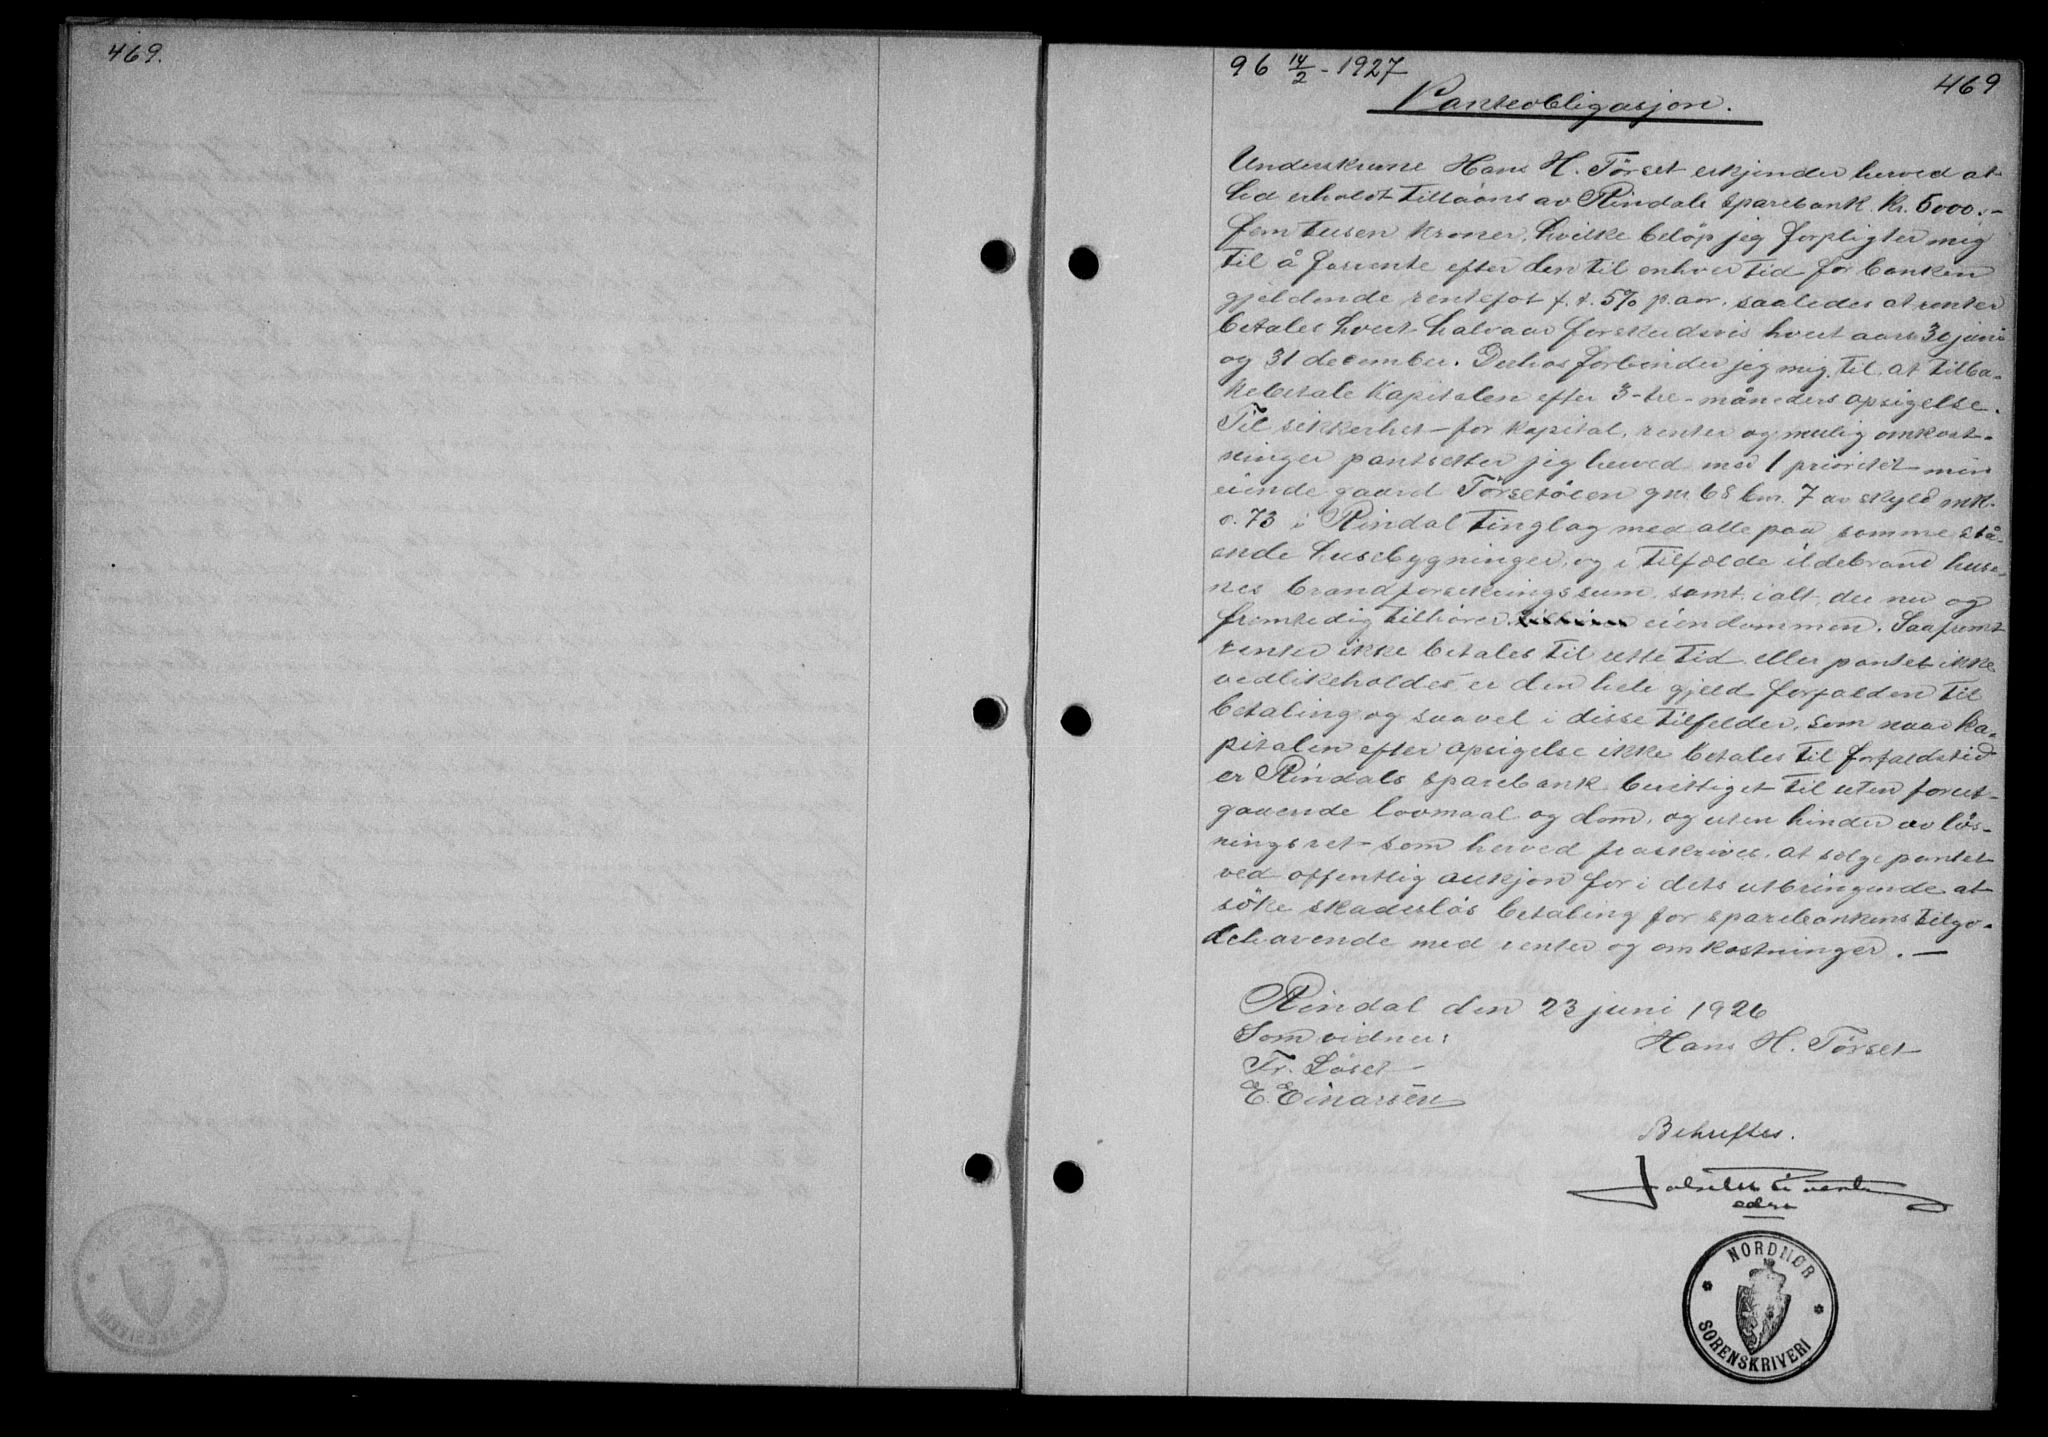 469.
96 14/2 - 1927
469
Panteobligasjon.
Underskrevne Hans H. Tørset erkjender herved at
ha erholdt tillaans av Rindals sparebank kr. 5000.-
fem tusen kroner, hvilke beløp jeg forpligter mig
til å forrente efter den til enhver tid for banken
gjeldende rentefot f. t. 5% p. aar. saaledes at renter
betales hvert halvaar forskudsvis hvert aars 30 juni
og 31 december. Derhos forbinder jeg mig til at tilba-
kebetale kapitalen efter 3-tre-måneders opsigelse.
Til sikkerhet for kapital, renter og mulig omkost-
ninger pantsetter jeg herved med 1 prioritet min
eiende gaard Tørsetøien gnr 68 bnr. 7 av skyld mk.
0.73 i Rindal tinglag med alle paa samme stå-
ende husebygninger, og i tilfælde ildebrand huse-
nes brandforsikringssum, samt ialt der nu og
fremtedig tilhører tilhører eiendommen. Saafremt
renter ikke betales til rette tid eller pantet ikke
vedlikeholdes er den hele gjeld forfalden til
betaling og saavel i disse tilfelder, som naar ka-
pitalen efter opsigelse ikke betales til forfaldstid
er Rindals sparebank berettiget til uten forut-
gaaende lovmaal og dom, og uten hinder av løs-
ningsret som herved fraskrives, at selge pantet
ved offentlig auksjon for i dets utbringende at
søke skadesløs betaling for sparebankens tilgo-
dehavende med renter og omkostninger. -
Rindal den 23 juni 1926
Som vidner:
Hans H. Tørset
Fr. Løset
E. Einarsen
Bekreftes.
NORDMØR
SORENSKRIVERI